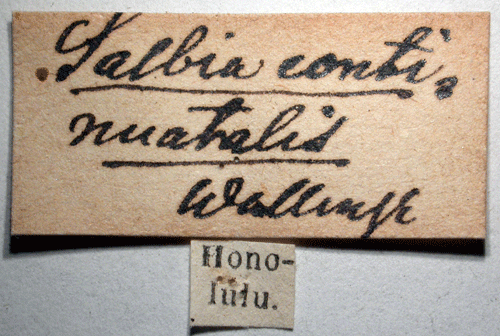 Salbia conti-
nuatalis
Wallengr
Hono-
lulu.